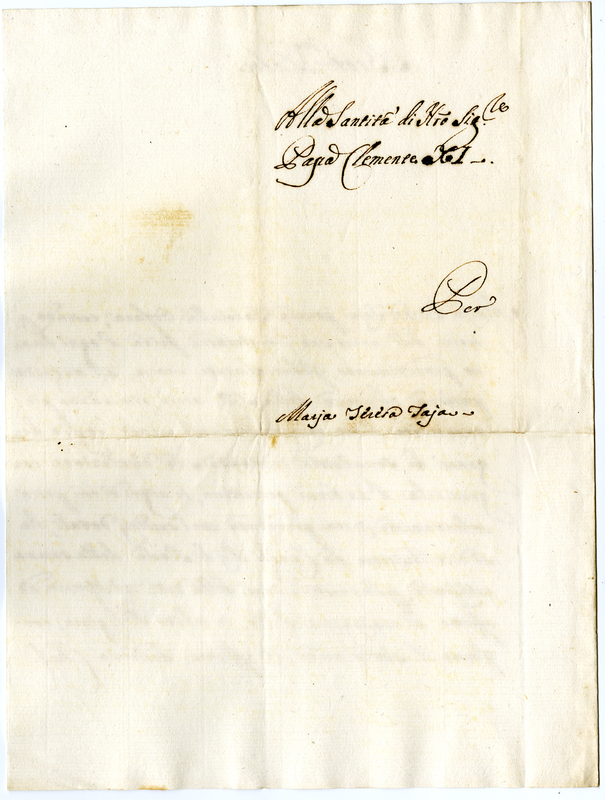 Alla Santità di Nro Sig.re
Papa Clemente XI.
Per
Maria Teresa Taja